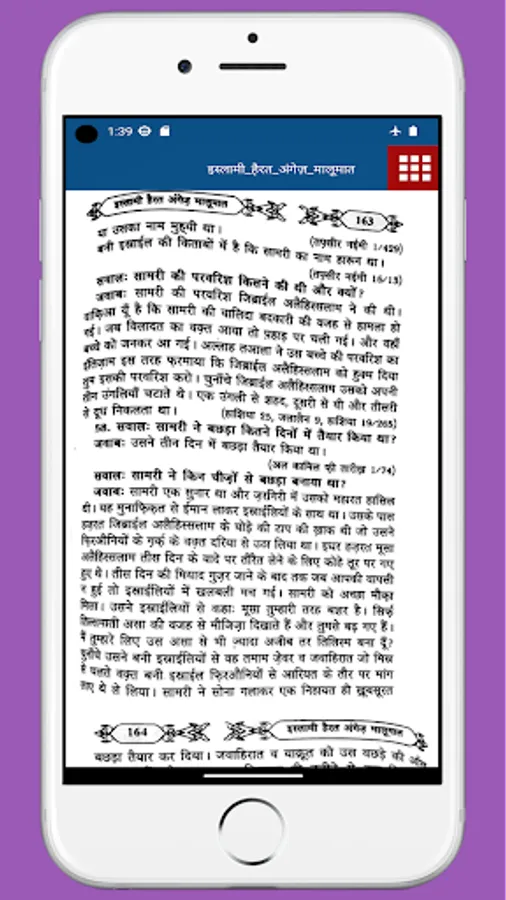 1:39
इस्लामी_हैरत_अंगेज़_मालूमात
इस्लामी हैरत अंगेज़ मालूमात
163
या उसका नाम मुह्यी था।
(तफ़्सीर नईमी 1/429)
बनी इस्राईल की किताबों में है कि सामरी का नाम हारून था।
(तफ़्सीर नईमी 16/13)
सवालः सामरी की परवरिश किसने की थी और क्यों?
जवाबः सामरी की परवरिश जिब्राईल अलैहिस्सलाम ने की थी।
वाक़िआ यूँ है कि सामरी की वालिदा बदकारी की वजह से हामला हो
गई। जब विलादत का वक़्त आया तो पहाड़ पर चली गई। और वहाँ
बच्चे को जनकर आ गई। अल्लाह तआला ने उस बच्चे की परवरिश का
इंतिज़ाम इस तरह फ़रमाया कि जिब्राईल अलैहिस्सलाम को हुक्म दिया
तुम इसकी परवरिश करो। चुनाँचे जिब्राईल अलैहिस्सलाम उसको अपनी
तीन उंगलियाँ चटाते थे। एक उंगली से शहद, दूसरी से घी और तीसरी
से दूध निकलता था।
(हाशिया 25, जलालैन 9, हाशिया 19/265)
58. सवालः सामरी ने बछड़ा कितने दिनों में तैयार किया था?
जवाबः उसने तीन दिन में बछड़ा तैयार किया था।
(अल कामिल फ़ी तारीख़ 1/74)
सवालः सामरी ने किन चीज़ों से बछड़ा बनाया था?
जवाबः सामरी एक सुनार था और ज़रगिरी में उसको महारत हासिल
थी। यह मुनाफ़िक़त से ईमान लाकर इस्राईलियों के साथ था। उसके पास
हज़रत जिब्राईल अलैहिस्सलाम के घोड़े की टाप की ख़ाक थी जो उसने
फ़िरऔनियों के ग़र्क़ के वक़्त दरिया से उठा लिया था। इधर हज़रत मूसा
अलैहिस्सलाम तीस दिन के वादे पर तौरेत लेने के लिए कोहे तूर पर गए
हुए थे। तीस दिन की मियाद गुज़र जाने के बाद तक जब आपकी वापसी
न हुई तो इस्राईलियों में खलबली मच गई। सामरी को अच्छा मौक़ा
मिला। उसने इस्राईलियों से कहाः मूसा तुम्हारी तरह बशर है। सिर्फ़
तिलिस्माती असा की वजह से मौजिज़ा दिखाते हैं और तुमसे बढ़ गए हैं।
मैं तुम्हारे लिए उस असा से भी ज़्यादा अजीब तर तिलिस्म बना दूँ?
चुनाँचे उसने बनी इस्राईलियों से वह तमाम ज़ेवर व जवाहिरात जो मिस्र
से चलते वक़्त बनी इस्राईल फ़िरऔनियों से आरियत के तौर पर मांग
लाए थे ले लिया। सामरी ने सोना गलाकर एक निहायत ही ख़ूबसूरत
164
इस्लामी हैरत अंगेज़ मालूमात
बछड़ा तैयार कर दिया। जवाहिरात व याक़ूत को उस बछड़े की आँख